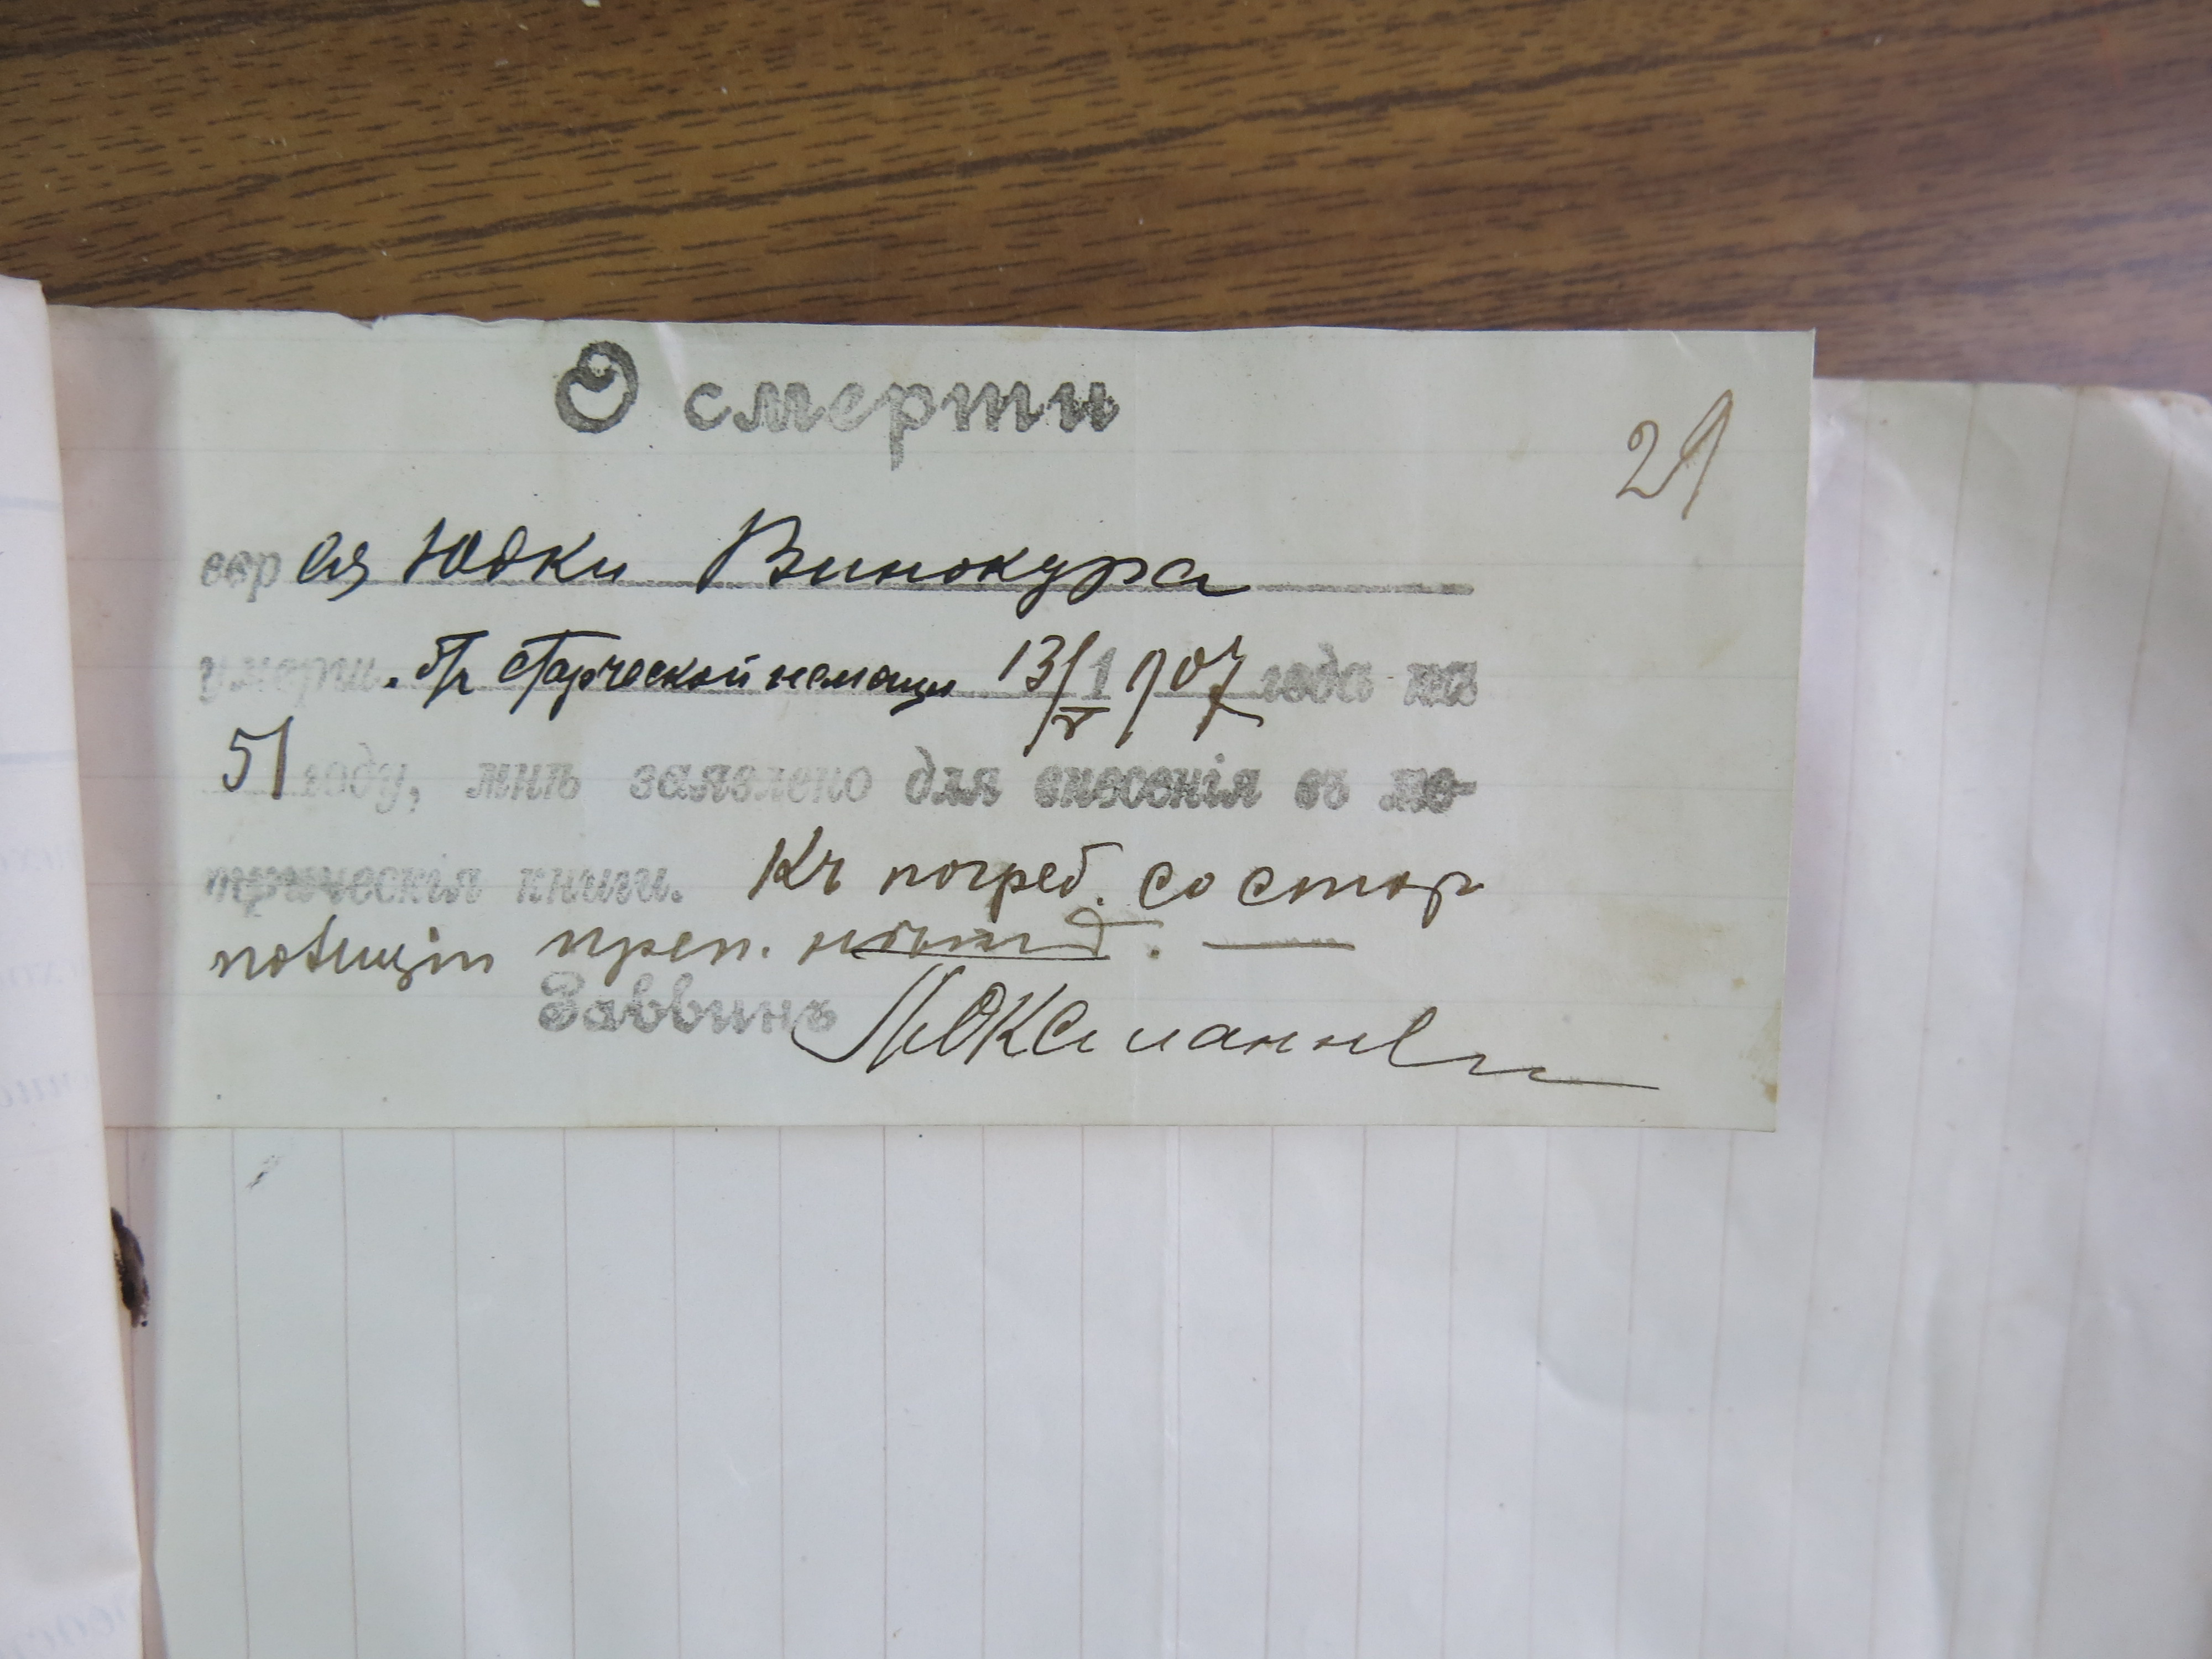 О смерти
29
евр ея Юдки Винокура
умерш. от старческой немощи 13/V 1907 года на
51 году, мнѣ заявлено для внесенія въ ме-
трическія книги. Къ погреб. со стор
полиціи преп. нѣтъ.
Раввинъ